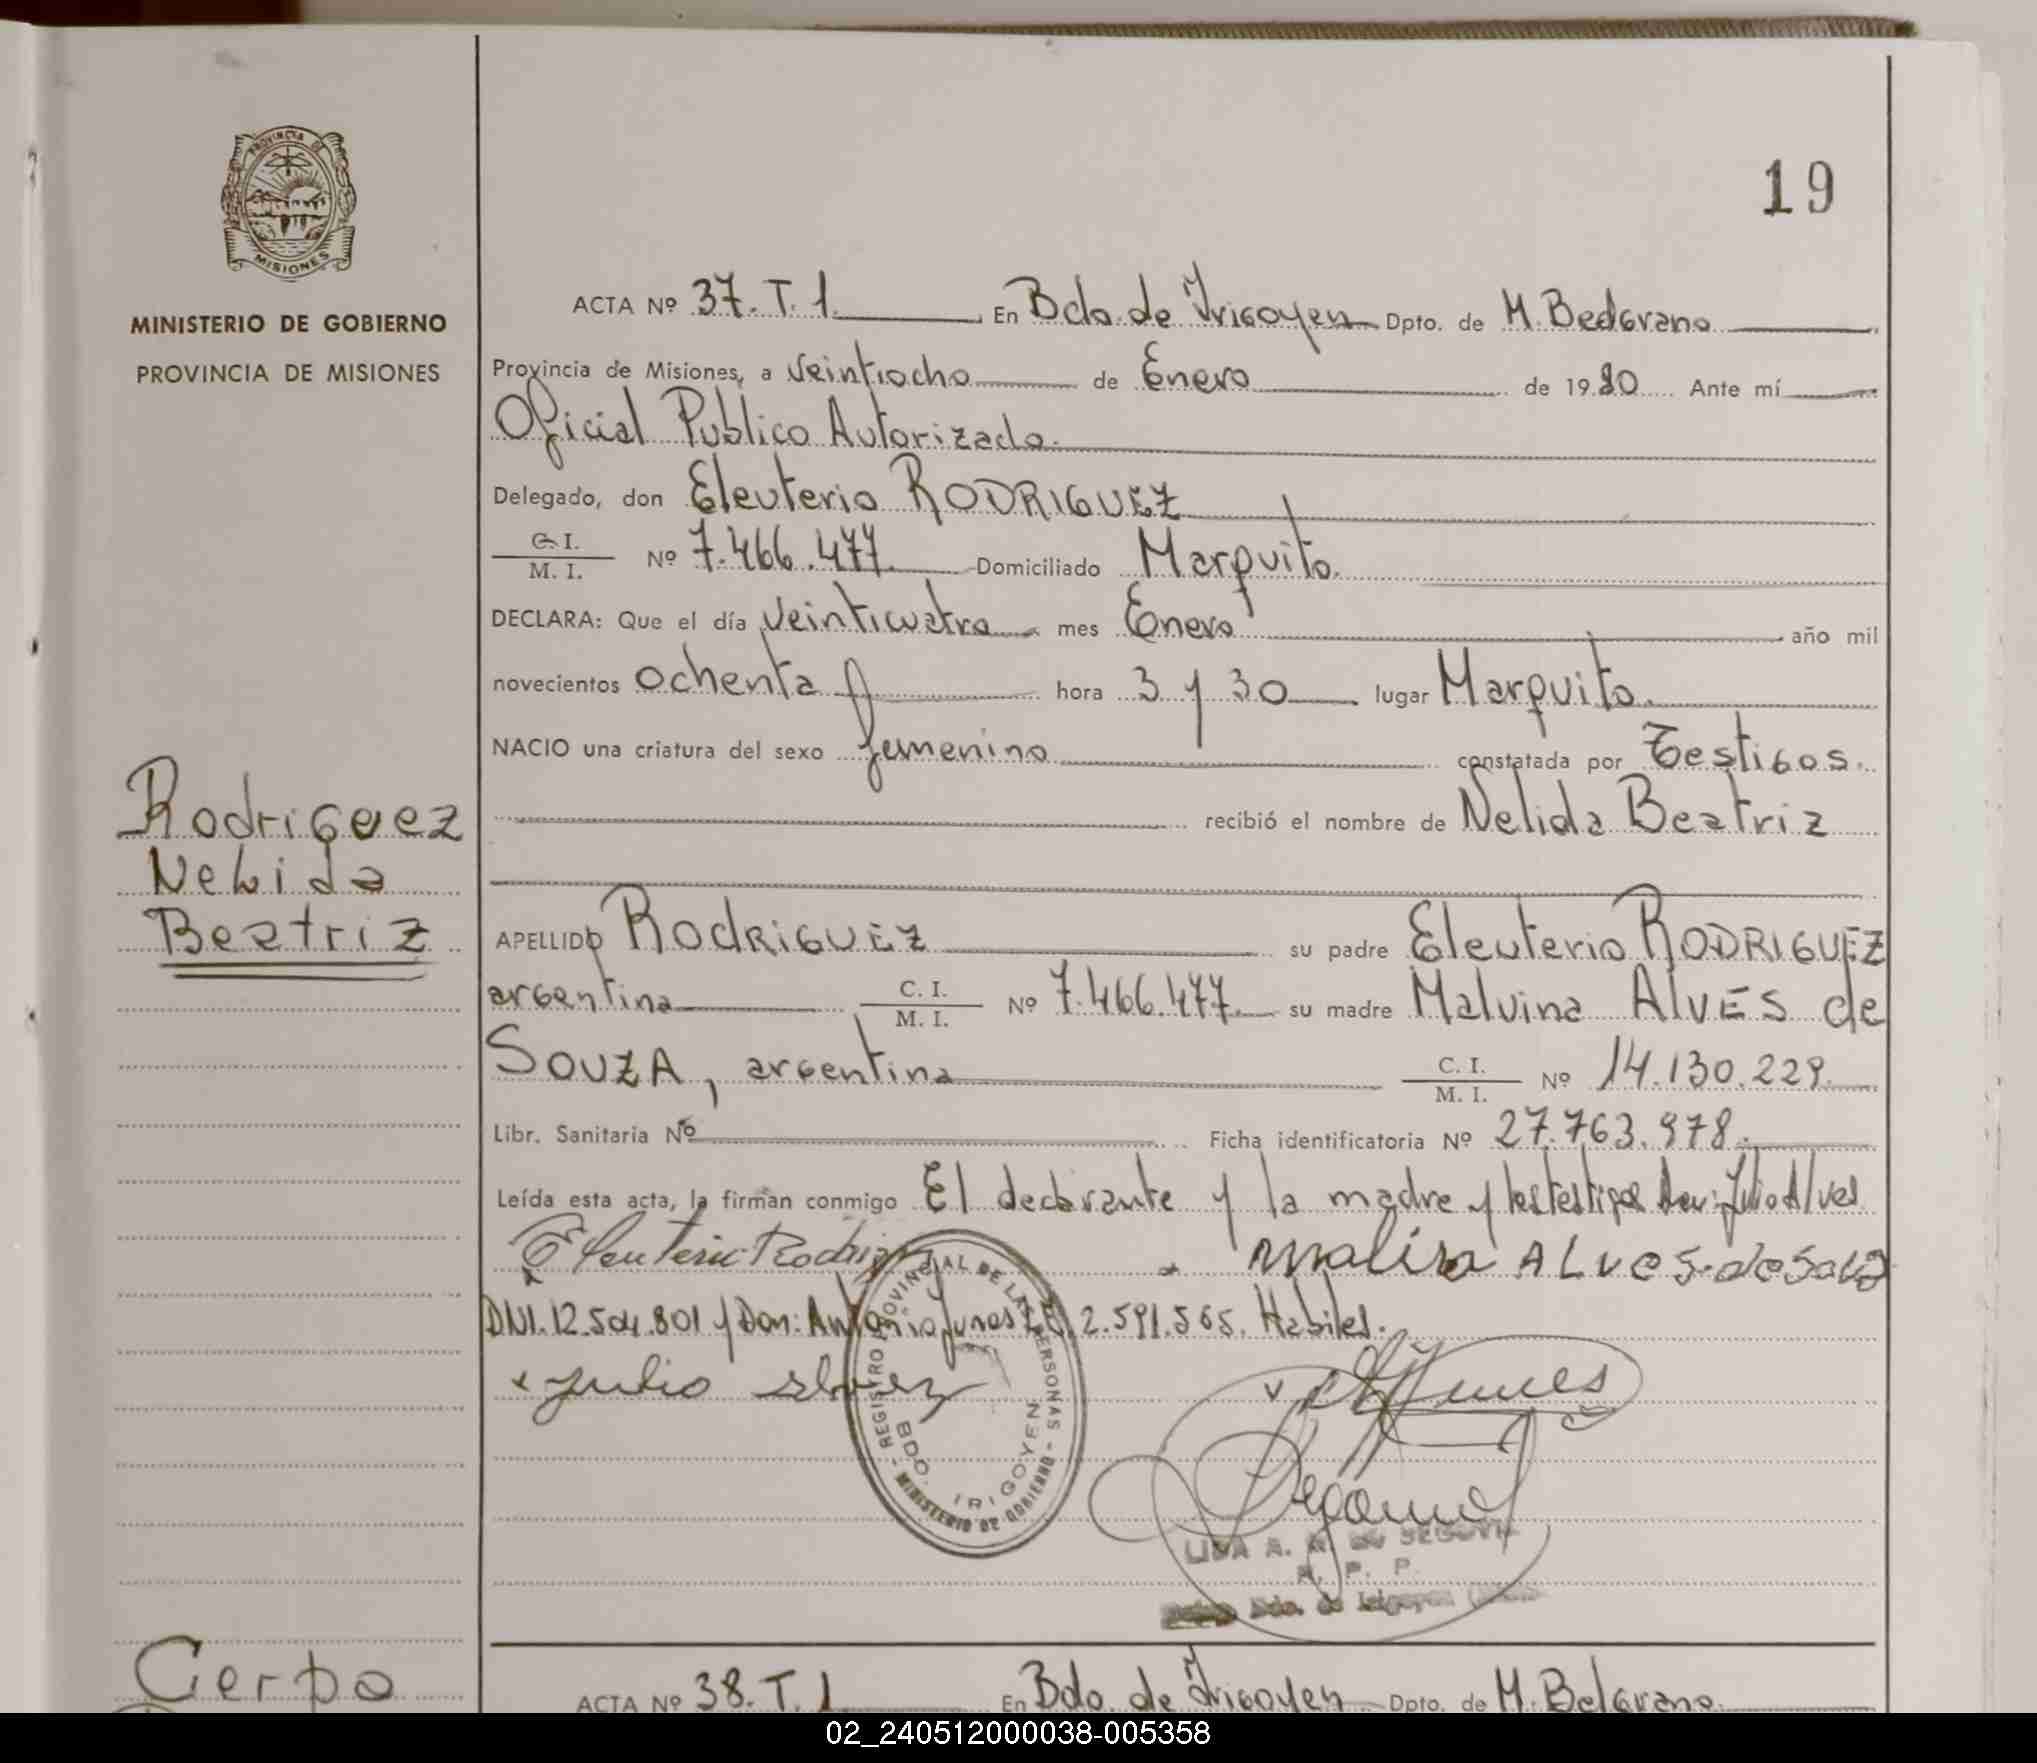 PROVINCIA DE
MISIONES
MINISTERIO DE GOBIERNO
PROVINCIA DE MISIONES
19
ACTA Nº 37.T.1. En Bdo de Irigoyen Dpto. de M. Bedgrano
Provincia de Misiones, a veintiocho de Enero de 1980 Ante mí
Oficial Publico Autorizado.
Delegado, don Eleuterio RODRIGUEZ
C. I.
M. I. Nº 7.466.477. Domiciliado Marquito.
DECLARA: Que el día veinticuatro mes Enero año mil
novecientos ochenta hora 3 y 30 lugar Marquito.
NACIO una criatura del sexo femenino constatada por Testigos.
recibió el nombre de Nelida Beatriz
Rodriguez
Nelida
Beatriz
APELLIDO RODRIGUEZ su padre Eleuterio RODRIGUEZ
argentina C. I.
M. I. Nº 7.466.477. su madre Malvina ALVES de
SOUZA, argentina C. I.
M. I. Nº 14.130.229.
Libr. Sanitaria Nº Ficha identificatoria Nº 27.763.978.
Leída esta acta, la firman conmigo El declarante y la madre y los testigos Don: Julio Alves
Eleuterio Rodrig
malira ALves-desouza
DNI.12.504.801 y Don: Antonio Junes 2.591.565. Habiles.
julio alvez
REGISTRO PROVINCIAL DE LAS PERSONAS
BDO. IRIGOYEN
MINISTERIO DE GOBIERNO
Bdo. de Irigoyen
Cerpa
ACTA Nº 38.T.1 En Bdo de Irigoyen Dpto. de M. Belgrano.
02_240512000038-005358